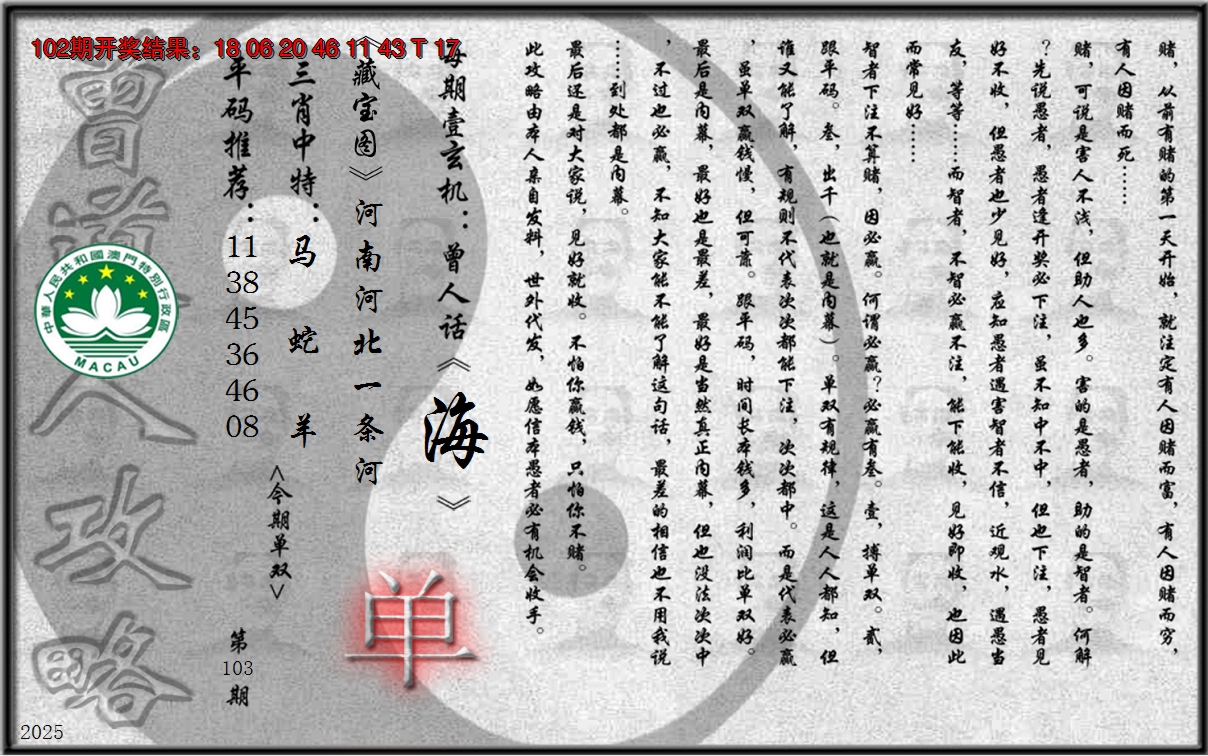 102期开奖结果：18 06 20 46 11 43 T 17
赌，从前有赌的第一天开始，就注定有人因赌而富，有人因赌而穷，
有人因赌而死……
赌，可说是害人不浅，但助人也多。害的是愚者，助的是智者。何解
？先说愚者，愚者逢开奖必下注，虽不知中不中，但也下注，愚者见
好不收，但愚者也少见好，应知愚者遇害智者不信，近观水，遇愚当
友，等等……而智者，不智必赢不注，能下能收，见好即收，也因此
而常见好……
智者下注不算赌，因必赢。何谓必赢？必赢有叁。壹，搏单双。贰，
跟平码。叁，出千（也就是内幕）。单双有规律，这是人人都知，但
谁又能了解，有规则不代表次次都能下注，次次都中。而是代表必赢
，虽单双赢钱慢，但可靠。跟平码，时间长本钱多，利润比单双好。
最后是内幕，最好也是最差，最好是当然真正内幕，但也没法次次中
，不过也必赢，不知大家能不能了解这句话，最差的相信也不用我说
……到处都是内幕。
最后还是对大家说，见好就收。不怕你赢钱，只怕你不赌。
此攻略由本人亲自发料，世外代发，如愿信本愚者必有机会收手。
每期壹玄机：曾人话《海》
《藏宝图》河南河北一条河
单
三肖中特：马 蛇 羊
<今期单双>
平码推荐：11 38 45 36 46 08
第103期
曾道人攻略
中華人民共和國澳門特別行政區
MACAU
2025